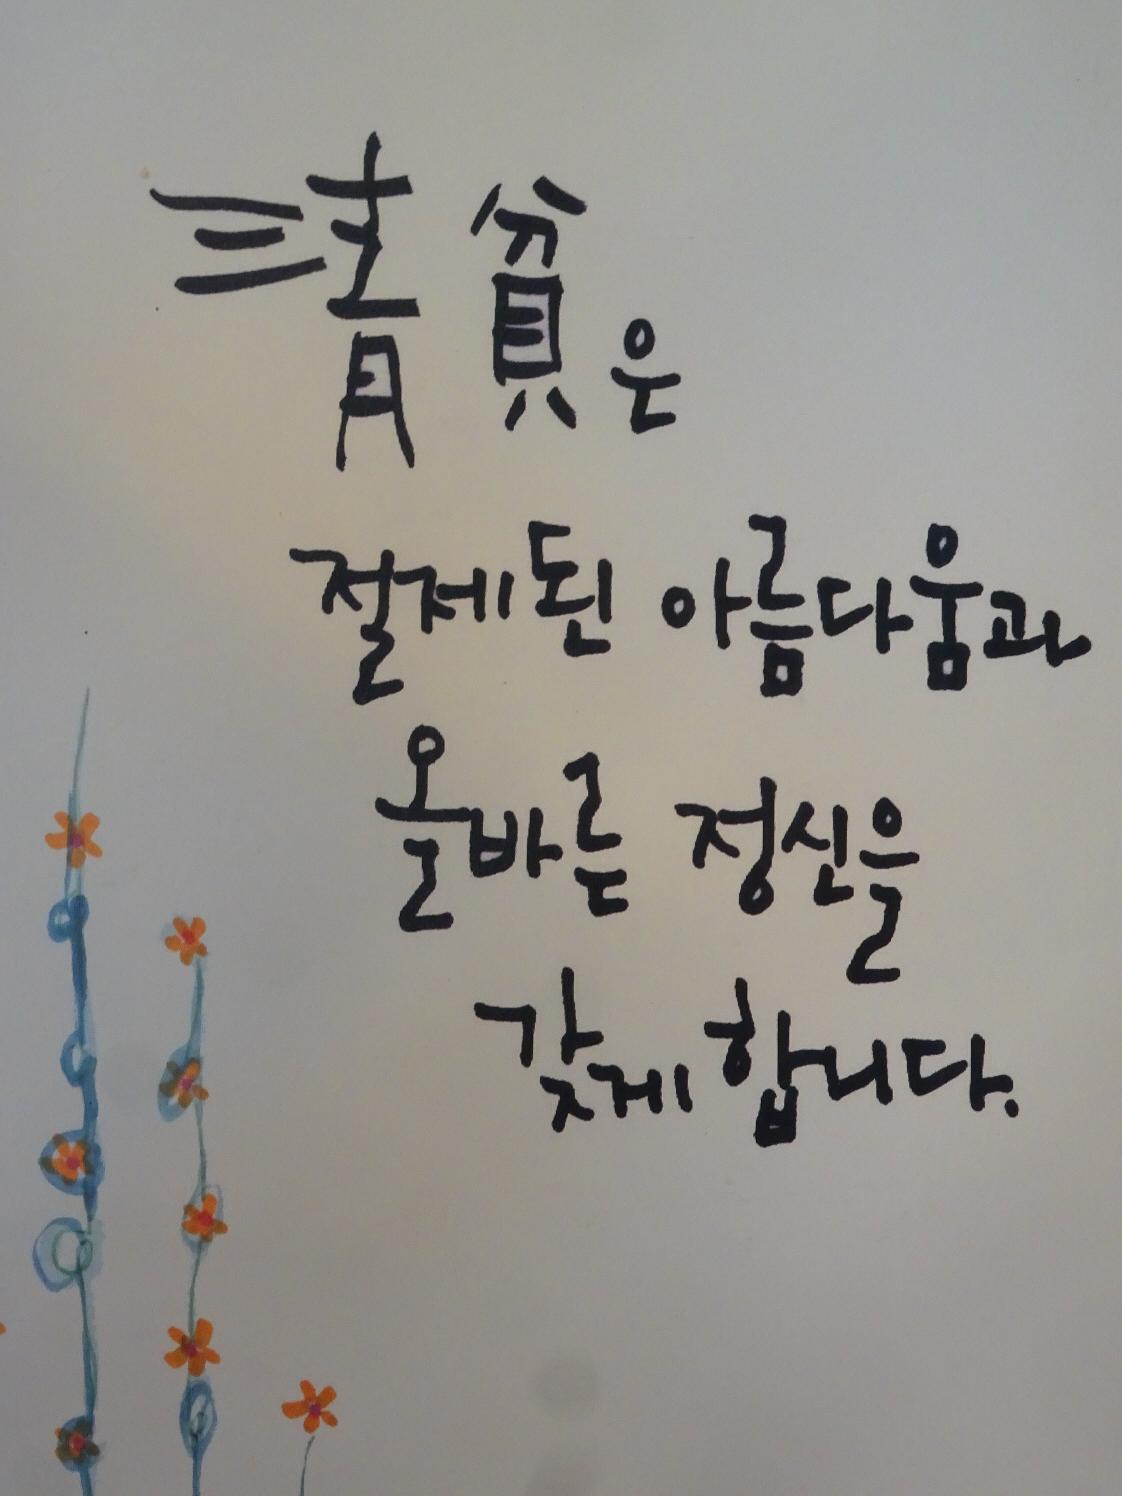 淸貧은
절제된 아름다움과
올바른 정신을
갖게 합니다.